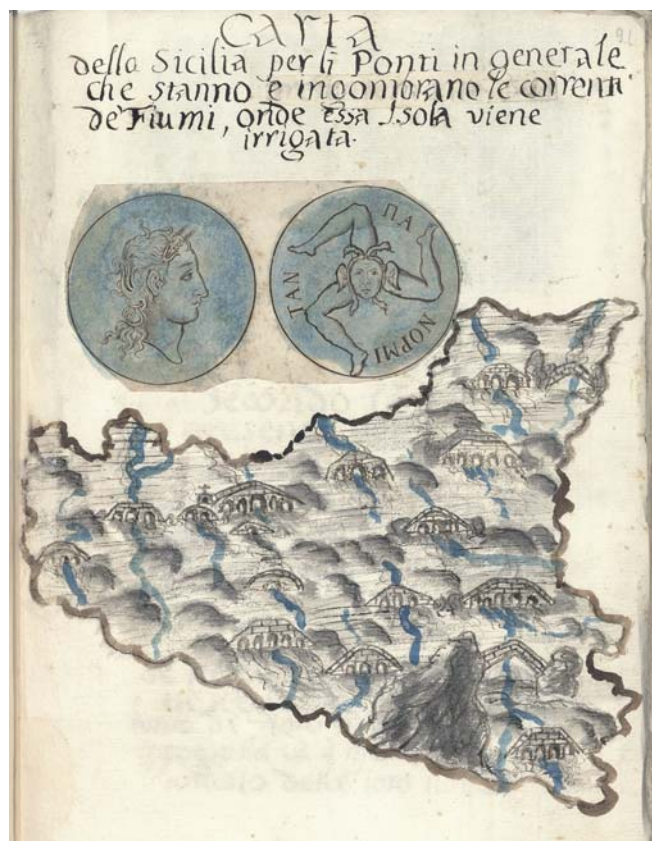 Carta
della Sicilia per li Ponti in generale
che stanno e ingombrano le correnti
de' Fiumi, onde essa Isola viene
irrigata.
91
ΠΑ
ΝΟΡΜΙ
ΤΑΝ